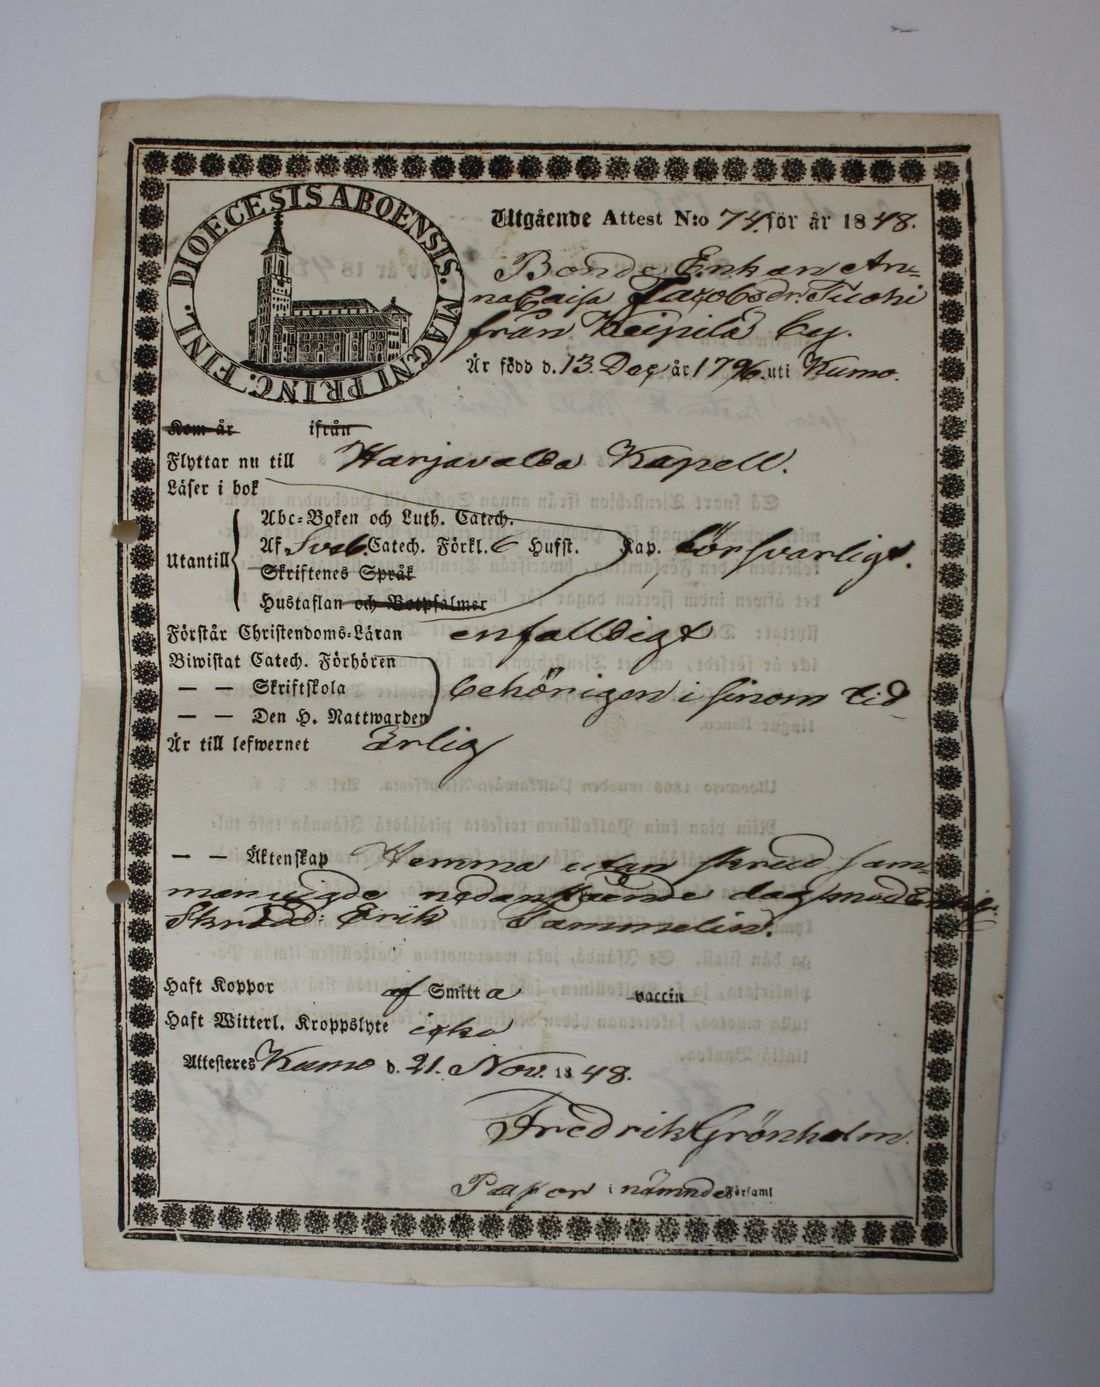 DIOECESIS ABOENSIS. MAGNI PRINC. FINL.
Utgående Attest N:o 74. för år 1848.
Bonde Enkan An-
na Caisa Jacobsdr Tuohi
från Keipilä by.
Är född d. 13. Dec år 1796. uti Kumo.
Kom år ifrån
Flyttar nu till Harjavalda Kapell.
Läser i bok
Abc-Boken och Luth. Catech.
Utantill Af Sveb. Catech. Förkl. 6 Hufst. Kap. försvarligt.
Skriftenes Språk
Hustaflan och Botpsalmer
Förstår Christendoms-Läran enfalldigt
Biwistat Catech. Förhören
— — Skriftskola behörigen i sinom tid
— — Den H. Nattwarden
Är till lefwernet Ärlig
— — Äktenskap Hemma utan skrud sam-
manvigde nedanstående dag med Enkl.
Skrädd: Erik Sammelin.
Haft Koppor af Smitta vaccin
Haft Witterl. Kroppslyte icke
Attesteres Kumo d. 21. Nov. 1848.
Fredrik Grönholm.
Pastor i nämnde Församl